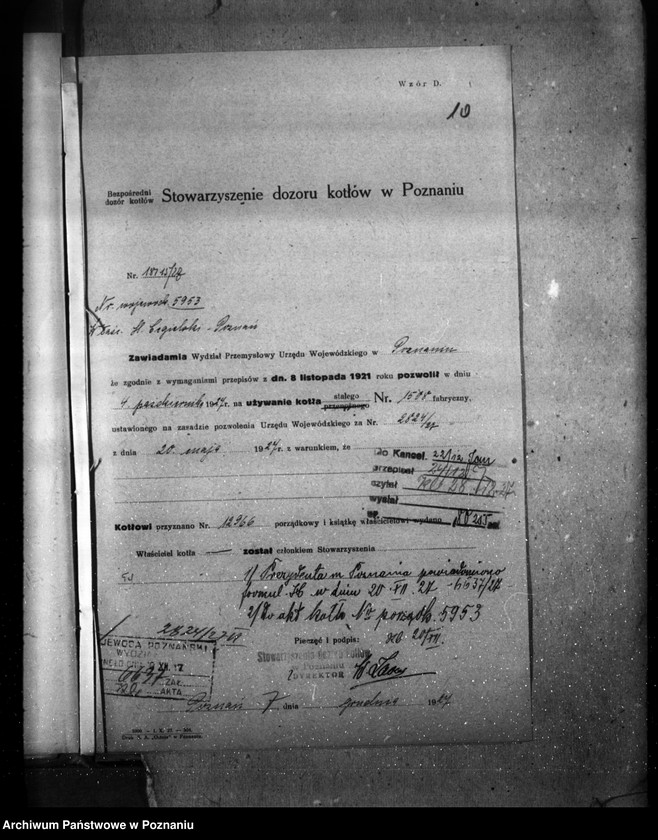 Wzór D.
10
Bezpośredni dozór kotłów
Stowarzyszenie dozoru kotłów w Poznaniu
Nr. 18715/27
Nr. wojewódz. 5953
H. Cegielski - Poznań
Zawiadamia Wydział Przemysłowy Urzędu Wojewódzkiego w Poznaniu
że zgodnie z wymaganiami przepisów z dn. 8 listopada 1921 roku pozwolił w dniu
4. października 1927 r. na używanie kotła stałego przenośnego Nr. 1505 fabryczny,
ustawionego na zasadzie pozwolenia Urzędu Wojewódzkiego za Nr. 2824/27
z dnia 20. maja 1927 r. z warunkiem, że
Do Kancel. 22/12
przepisał
czytał
wysłał
Kotłowi przyznano Nr. 12966 porządkowy i książkę właścicielowi wydano
Właściciel kotła — został członkiem Stowarzyszenia
1/ Prezydenta m. Poznania powiadomiono
formul. H w dniu 20 XII. 27. 6637/27
2/ Do akt kotła Nr porządk. 5953
Pieczęć i podpis:
2824/27 VI
WOJEWODA POZNAŃSKI
WYDZIAŁ
6637
ZAŁ.
AKTA
Stowarzyszenie Dozoru Kotłów
w Poznaniu
DYREKTOR
Poznań 7 dnia grudnia 1927
Archiwum Państwowe w Poznaniu